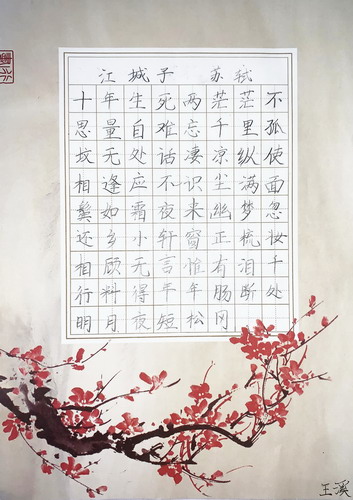 江城子 苏轼
十年生死两茫茫不
思量自难忘千里孤
坟无处话凄凉纵使
相逢应不识尘满面
鬓如霜夜来幽梦忽
还乡小轩窗正梳妆
相顾无言惟有泪千
行料得年年肠断处
明月夜短松冈
王溪